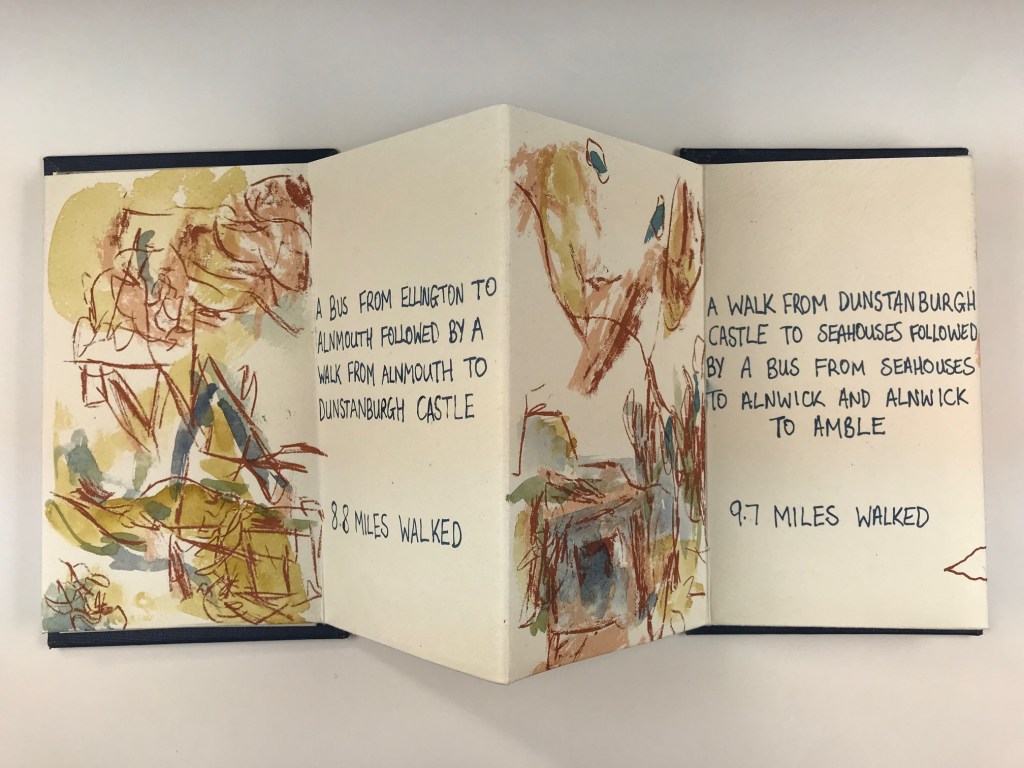 A BUS FROM ELLINGTON TO
ALNMOUTH FOLLOWED BY A
WALK FROM ALNMOUTH TO
DUNSTANBURGH CASTLE
8.8 MILES WALKED
A WALK FROM DUNSTANBURGH
CASTLE TO SEAHOUSES FOLLOWED
BY A BUS FROM SEAHOUSES
TO ALNWICK AND ALNWICK
TO AMBLE
9.7 MILES WALKED